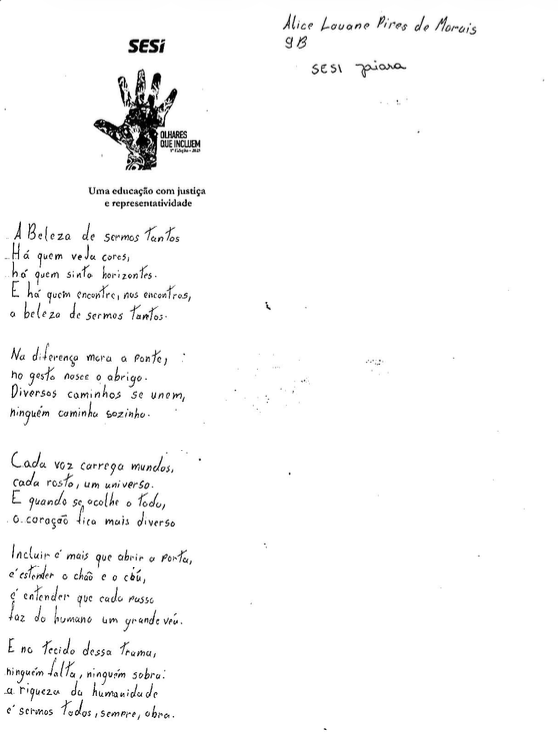 SESI
OLHARES
QUE INCLUEM
Uma educação com justiça
e representatividade
Alice Louane Pires de Morais
9B
SESI Jaiara
A Beleza de sermos tantos
Há quem veja cores,
há quem sinta horizontes.
E há quem encontre, nos encontros,
a beleza de sermos tantos.
Na diferença mora a ponte,
no gesto nasce o abrigo.
Diversos caminhos se unem,
ninguém caminha sozinho.
Cada voz carrega mundos,
cada rosto, um universo.
E quando se acolhe o todo,
o coração fica mais diverso
Incluir é mais que abrir a porta,
é estender o chão e o céu,
é entender que cada passo
faz do humano um grande véu.
E no tecido dessa trama,
ninguém falta, ninguém sobra:
a riqueza da humanidade
é sermos todos, sempre, obra.